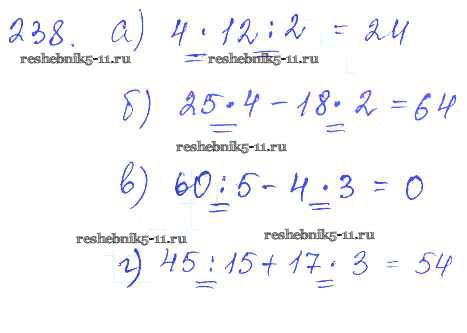 238. а) 4 · 12 : 2 = 24
reshebnik5-11.ru reshebnik5-11.ru
б) 25 · 4 - 18 · 2 = 64
reshebnik5-11.ru
в) 60 : 5 - 4 · 3 = 0
reshebnik5-11.ru reshebnik5-11.ru
г) 45 : 15 + 17 · 3 = 54